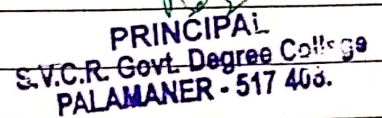 PRINCIPAL
S.V.C.R. Govt. Degree College
PALAMANER - 517 408.